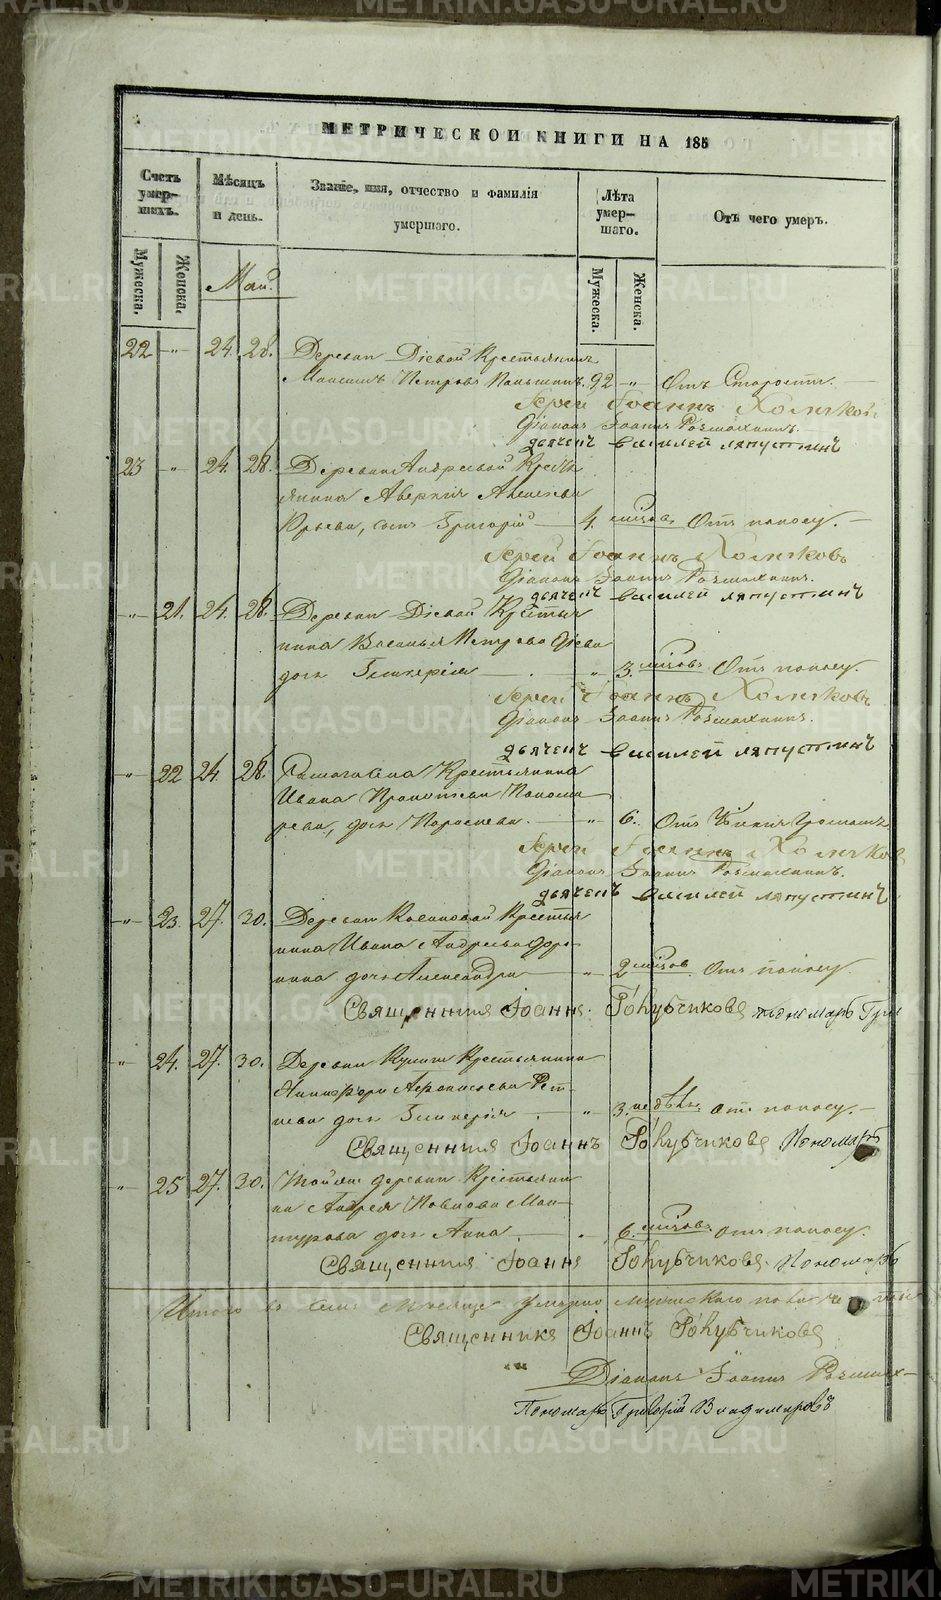 МЕТРИЧЕСКОЙ КНИГИ НА 185
Счетъ умер-шихъ.
Мѣсяцъ и день.
Званіе, имя, отчество и фамилія умершаго.
Лѣта умер-шаго.
Отъ чего умеръ.
Мужеска.
Женска.
Мужеска.
Женска.
Май.
22 „ 24. 28. Деревни Діевой Крестьянинъ
Максимъ Петровъ Паньшинъ. 92 „ Отъ Старости.
Іерей Іоаннъ Холмков
Діаконъ Іоаннъ Размахнинъ.
дьячекъ василей ляпустинъ
23 „ 24. 28. Деревни Андреевой Кресть
янина Аверкія Алексѣева
сынъ Григорій 4. мѣсяцов. Отъ поносу.
Іерей Іоаннъ Холмковъ
Діаконъ Іоаннъ Размахнинъ.
дьячекъ василей ляпустинъ
„ 21. 24. 28. Деревни Діевой Крестья
нина Василья Петрова Діева
дочь Гликерія „ 3. мѣсяцовъ Отъ поносу.
Іерей Іоаннъ Холмковъ
Діаконъ Іоаннъ Размахнинъ.
дьячекъ василей ляпустинъ
„ 22 24. 28. Крестьянина
Ивана Прокопьева Понома
рева, дочь Парасковья. „ 6. Отъ
Іерей Іоаннъ Холмков
Діаконъ Іоаннъ Размахнинъ.
дьячекъ василей ляпустинъ
„ 23. 27. 30. Деревни Крестья
нина Ивана Андреева Доро
нина дочь Александра „ 2 мѣсяцов отъ поносу.
Священникъ Іоаннъ Голубчиковъ пономарь Гри
„ 24. 27. 30. Деревни Крестьянина
Никифора Афанасьева
дочь Гликерія „ 3. недѣль. отъ поносу.
Священникъ Іоаннъ Голубчиковъ Пономарь
„ 25 27. 30. Той же деревни Крестьяни
на Андрея Павлова Ман
турова дочь Анна. „ 6. мѣсяцовъ отъ поносу.
Священникъ Іоаннъ Голубчиковъ. Пономарь
Итого въ Маѣ Мѣсяцѣ умерло мужескаго пола
Священникъ Іоаннъ Голубчиковъ
Діаконъ Іоаннъ Размах-
Пономарь Григорій Владимировъ
METRIKI.GASO-URAL.RU